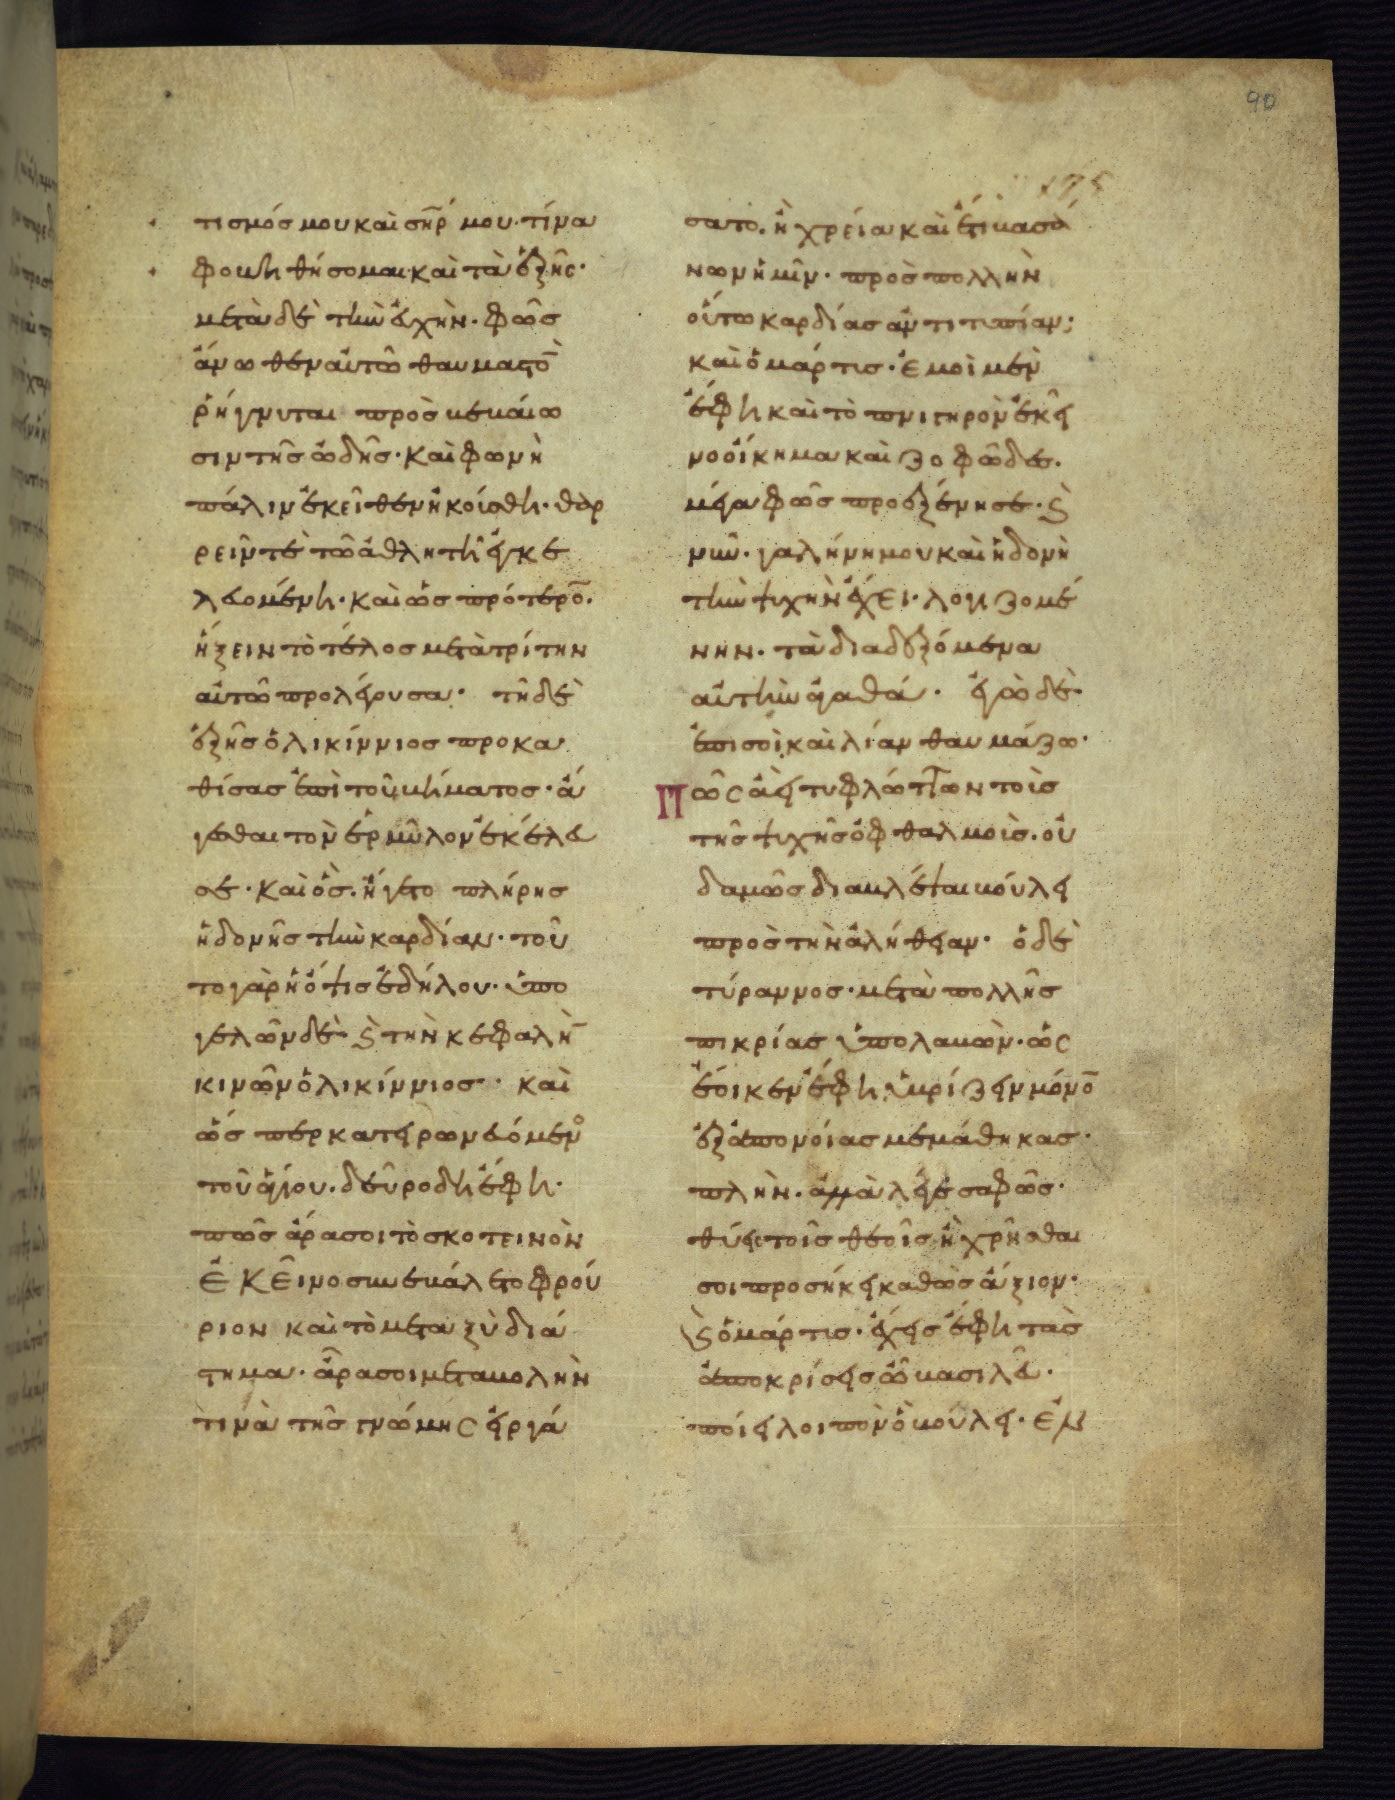 90
τισμός μου καὶ σ̅η̅ρ̅ μου· τίνα
φοβηθήσομαι· καὶ τὰ ἑξῆς·
μετὰ δὲ τὴν εὐχὴν· φῶς
ἄνωθεν αὐτῶ θαυμαστὸ̅
ῥήγνυται πρὸς βεβαίω
σιν τῆς ὠδῆς· καὶ φωνὴ
πάλιν ἐκεῖθεν ἠκούσθη· θαρ
ρεῖν τὲ τῶ ἀθλητῆ ἐγκε
λευομένη· καὶ ὡς πρότερο̅·
ἥξειν τὸ τέλος μετὰ τρίτην
αὐτῶ προλέγουσα· τῆ δὲ
ἑξῆς ὁ λικίννιος προκα
θίσας ἐπὶ τοῦ βήματος· ἄ
γεσθαι τὸν ἑρμύλον ἐκέλευ
σε· καὶ ὃς· ἤγετο πλήρης
ἡδονῆς τὴν καρδίαν· τοῦ
το γὰρ ἡ ὄψις ἐδήλου· ὑπο
γελῶν δὲ ϗ τὴν κεφαλὴ̅
κινῶν ὁ λικίννιος· καὶ
ὥσπερ κατειρωνευόμενο
τοῦ ἁγίου· δεῦρο δὴ ἔφη·
πῶς ἄρα σοι τὸ σκοτεινὸν
ἐκεῖνο συνεβάλετο φρού
ριον καὶ τὸ μεταξὺ διά
στημα· ἆρα σοι μεταβολὴν
τινὰ τῆς γνώμης εἰργά
σατο· ἢ χρεία καὶ ἔτι βασά
νων ἡμῖν· πρὸς πολλὴν
οὕτω καρδίας ἀντιτυπίαν;
καὶ ὁ μάρτυς· ἐμοὶ μὲν
ἔφη καὶ τὸ πνιγηρὸν ἐκεῖ
νο οἴκημα καὶ ζοφῶδες·
μέγα φῶς προεξένησε· ϗ
νῦν· γαλήνη μου καὶ ἡδονὴ
τὴν ψυχὴν ἔχει· λογιζομέ
νην· τὰ διαδεξόμενα
αὐτὴν ἀγαθά· ἐγὼ δὲ
ἐπὶ σοὶ καὶ λίαν θαυμάζω·
Πῶς ἀεὶ τυφλώττων τοῖς
τῆς ψυχῆς ὀφθαλμοῖς· οὐ
δαμῶς διαβλέψαι βούλει
πρὸς τὴν ἀλήθειαν· ὁ δὲ
τύραννος· μετὰ πολλῆς
πικρίας ὑπολαβὼν· ὡς
ἔοικεν ἔφη ὑβρίζειν μόνο̅
ἐξ ἀπονοίας μεμάθηκας·
πλὴν· ἀλλὰ λέγε σαφῶς·
θύεις τοῖς θεοῖς ἢ χρῆσθαι
σοι προσήκει καθὼς ἄξιον·
ϗ ὁ μάρτυς· ἔχεις ἔφη τὰς
ἀποκρίσεις ὦ βασιλεῦ·
ποίει λοιπὸν ὃ βούλει· ἐν